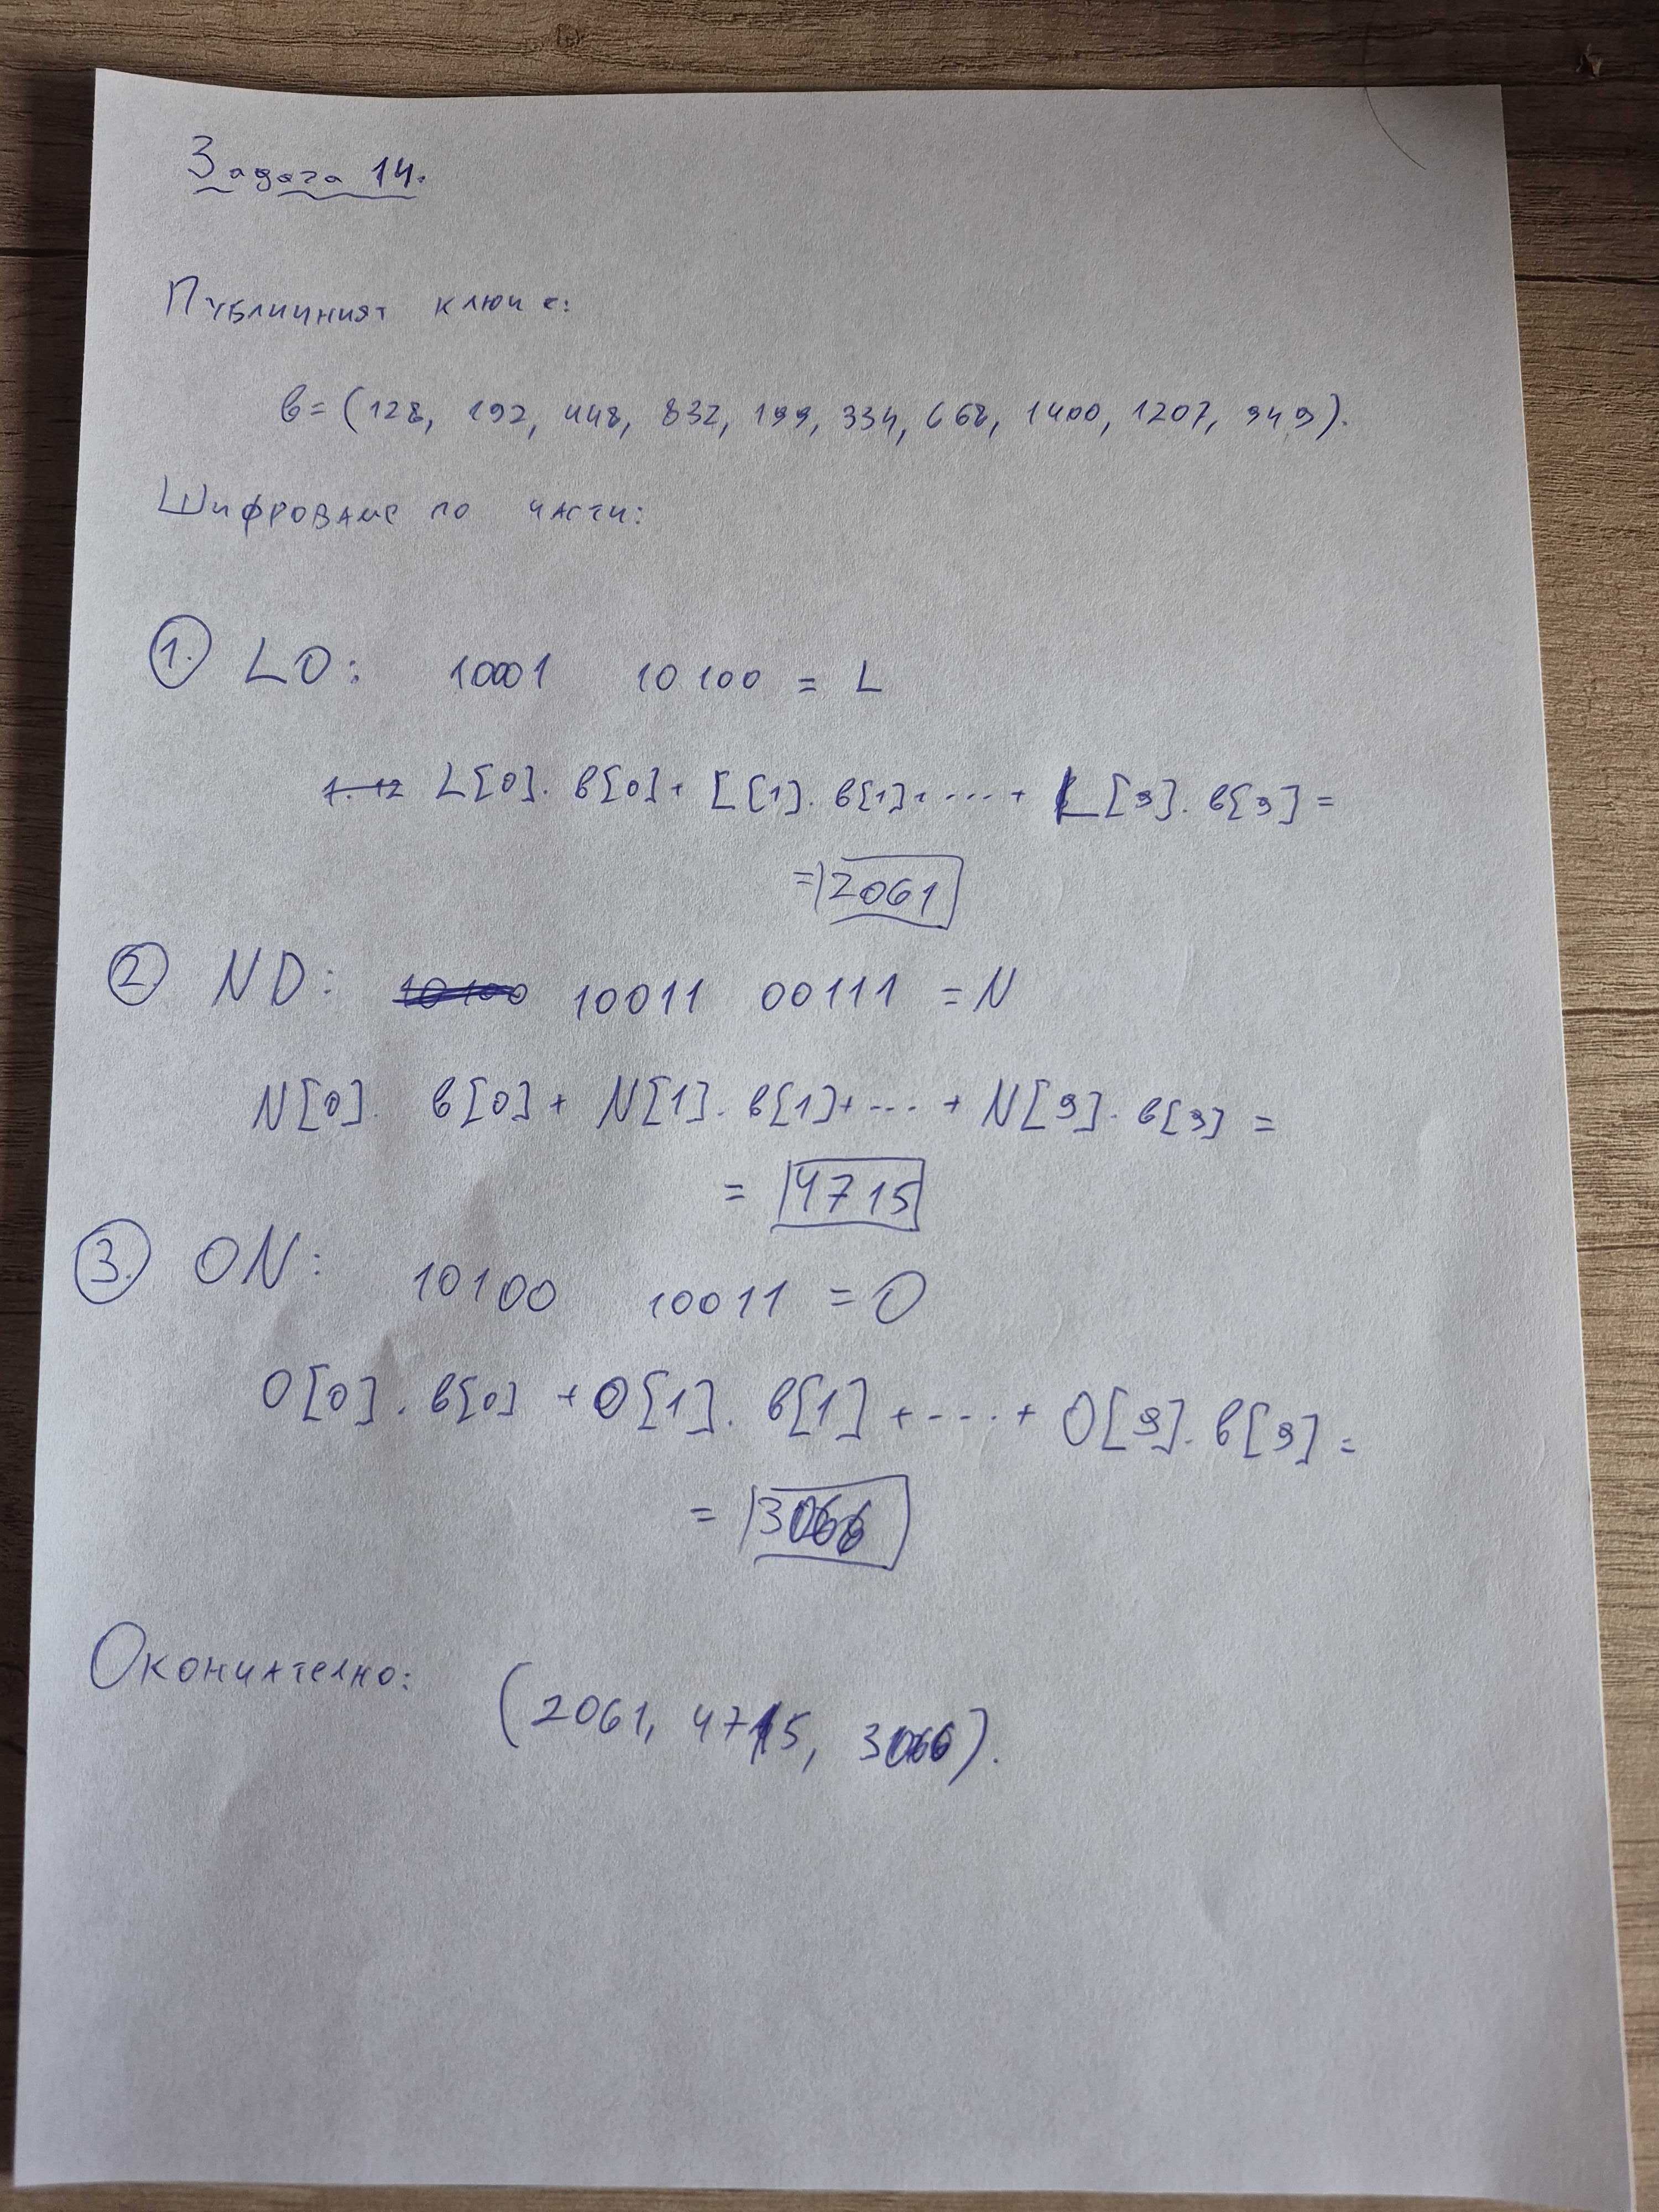 Задача 14.
Публичният ключ е:
b = (128, 192, 448, 832, 199, 334, 668, 1400, 1207, 949).
Шифроване по части:
1. LO: 10001 10100 = L
L[0]. b[0] + L[1]. b[1] + .... + L[9]. b[9] =
= 2061
2 ND: 10011 00111 = N
N[0]. b[0] + N[1]. b[1] + .... + N[9]. b[9] =
= 4715
3. ON: 10100 10011 = O
O[0]. b[0] + O[1]. b[1] + .... + O[9]. b[9] =
= 3066
Окончателно: (2061, 4715, 3066).